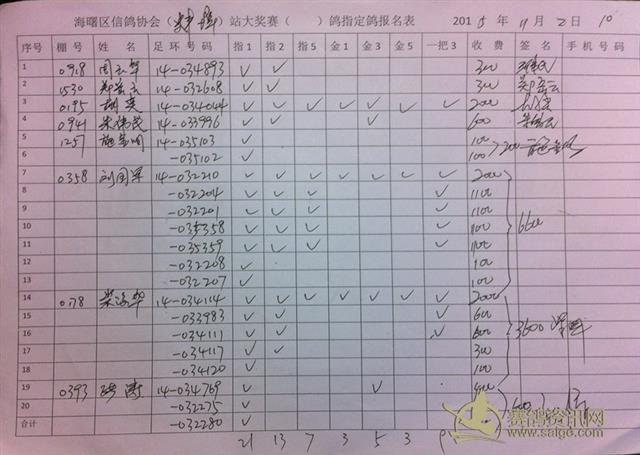 海曙区信鸽协会( )站大奖赛( )鸽指定鸽报名表 2015年11月2日 10
序号 棚号 姓名 足环号码 指1 指2 指5 金1 金3 金5 一把3 收费 签名 手机号码
1 0918 14-034893 ✓ ✓ 300
2 1530 14-032608 ✓ ✓ 300
3 0195 胡英 14-034044 ✓ ✓ ✓ ✓ ✓ ✓ ✓ 2000
4 0941 朱伟民 14-033996 ✓ ✓ ✓ 600
5 1257 14-035103 ✓ 100
6 -035102 ✓ 100 200
7 0358 刘国军 14-032210 ✓ ✓ ✓ ✓ ✓ ✓ ✓ 2000
8 -032204 ✓ ✓ ✓ ✓ 1100
9 -032201 ✓ ✓ ✓ ✓ 1100
10 -035358 ✓ ✓ ✓ ✓ 1100 6600
11 -035359 ✓ ✓ ✓ ✓ 1100
12 -032208 ✓ 100
13 -032207 ✓ 100
14 078 14-034114 ✓ ✓ ✓ ✓ ✓ ✓ ✓ 2000
15 -033983 ✓ ✓ ✓ 600
16 -034111 ✓ ✓ ✓ 600 3600
17 -034117 ✓ ✓ 300
18 -034120 ✓ 100
19 0393 14-034769 ✓ ✓ 400
20 -032275 ✓ 600
合计 -032280 ✓
21 13 7 3 5 3 9
赛鸽资讯网
www.saige.com